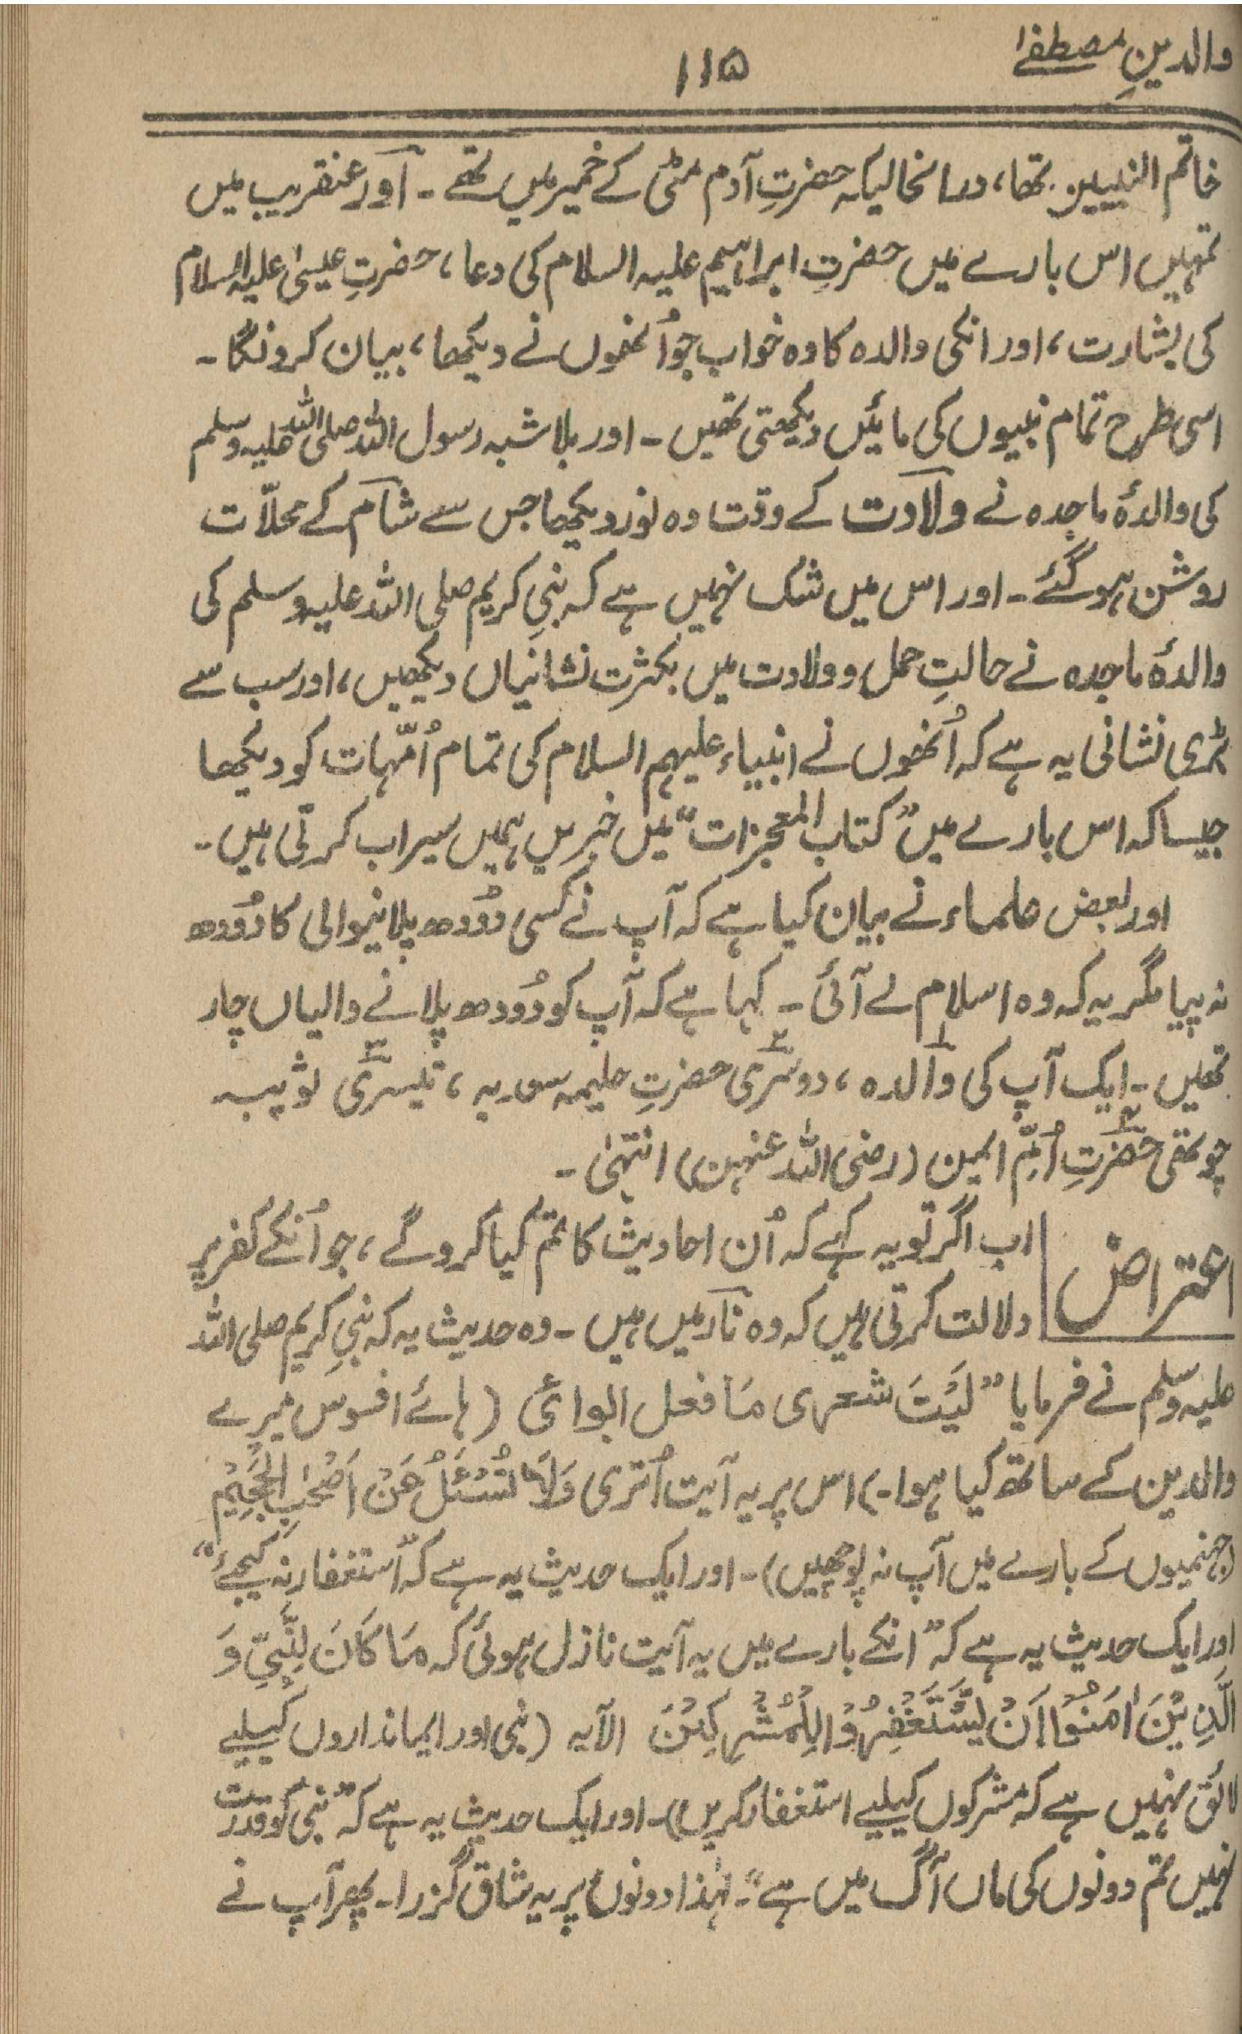 والدینِ مصطفےٰ
۱۱۵
خاتم النبیین تھا، درانحالیکہ حضرتِ آدم مٹی کے خمیر میں تھے۔ اور عنقریب میں
تمہیں اس بارے میں حضرتِ ابراہیم علیہ السلام کی دعا، حضرتِ عیسیٰ علیہ السلام
کی بشارت، اور انکی والدہ کا وہ خواب جو اُنھوں نے دیکھا، بیان کرونگا۔
اسی طرح تمام نبیوں کی مائیں دیکھتی تھیں۔ اور بلا شبہ رسول اللہ صلی اللہ علیہ وسلم
کی والدۂ ماجدہ نے ولادت کے وقت وہ نور دیکھا جس سے شام کے محلّات
روشن ہوگئے۔ اور اس میں شک نہیں ہے کہ نبیِ کریم صلی اللہ علیہ وسلم کی
والدۂ ماجدہ نے حالتِ حمل و ولادت میں بکثرت نشانیاں دیکھیں، اور سب سے
بڑی نشانی یہ ہے کہ اُنھوں نے انبیاء علیہم السلام کی تمام اُمّہات کو دیکھا
جیسا کہ اس بارے میں "کتاب المعجزات" میں خبریں ہمیں سیراب کرتی ہیں۔
اور بعض علماء نے بیان کیا ہے کہ آپ نے کسی دُودھ پلانیوالی کا دُودھ
نہ پیا مگر یہ کہ وہ اسلام لے آئی۔ کہا ہے کہ آپ کو دُودھ پلانے والیاں چار
تھیں۔ ایک آپ کی والدہ، دوسری حضرتِ حلیمہ سعدیہ، تیسری ثویبہ
چوتھی حضرتِ اُمِّ ایمن (رضی اللہ عنہن) انتہیٰ۔
اعتراض
اب اگر تو یہ کہے کہ اُن احادیث کا تم کیا کروگے، جو اُنکے کفر پر
دلالت کرتی ہیں کہ وہ نار میں ہیں۔ وہ حدیث یہ کہ نبیِ کریم صلی اللہ
علیہ وسلم نے فرمایا "لَیْتَ شعری مَا فعل ابوای (ہائے افسوس میرے
والدین کے ساتھ کیا ہوا۔) اس پر یہ آیت اُتری وَلَا تُسْئَلُ عَنْ اَصْحٰبِ الْجَحِیْمِ
(جہنمیوں کے بارے میں آپ نہ پوچھیں)۔ اور ایک حدیث یہ ہے کہ "استغفار نہ کیجئے"
اور ایک حدیث یہ ہے کہ "انکے بارے میں یہ آیت نازل ہوئی کہ مَا کَانَ لِلنَّبِیِّ وَ
الَّذِیْنَ اٰمَنُوْا اَنْ یَّسْتَغْفِرُوْا لِلْمُشْرِکِیْنَ الآیہ (نبی اور ایمانداروں کیلیے
لائق نہیں ہے کہ مشرکوں کیلیے استغفار کریں)۔ اور ایک حدیث یہ ہے کہ "نبی کو قدرت
نہیں تم دونوں کی ماں آگ میں ہے"۔ لہٰذا دونوں پر یہ شاق گزرا۔ پھر آپ نے